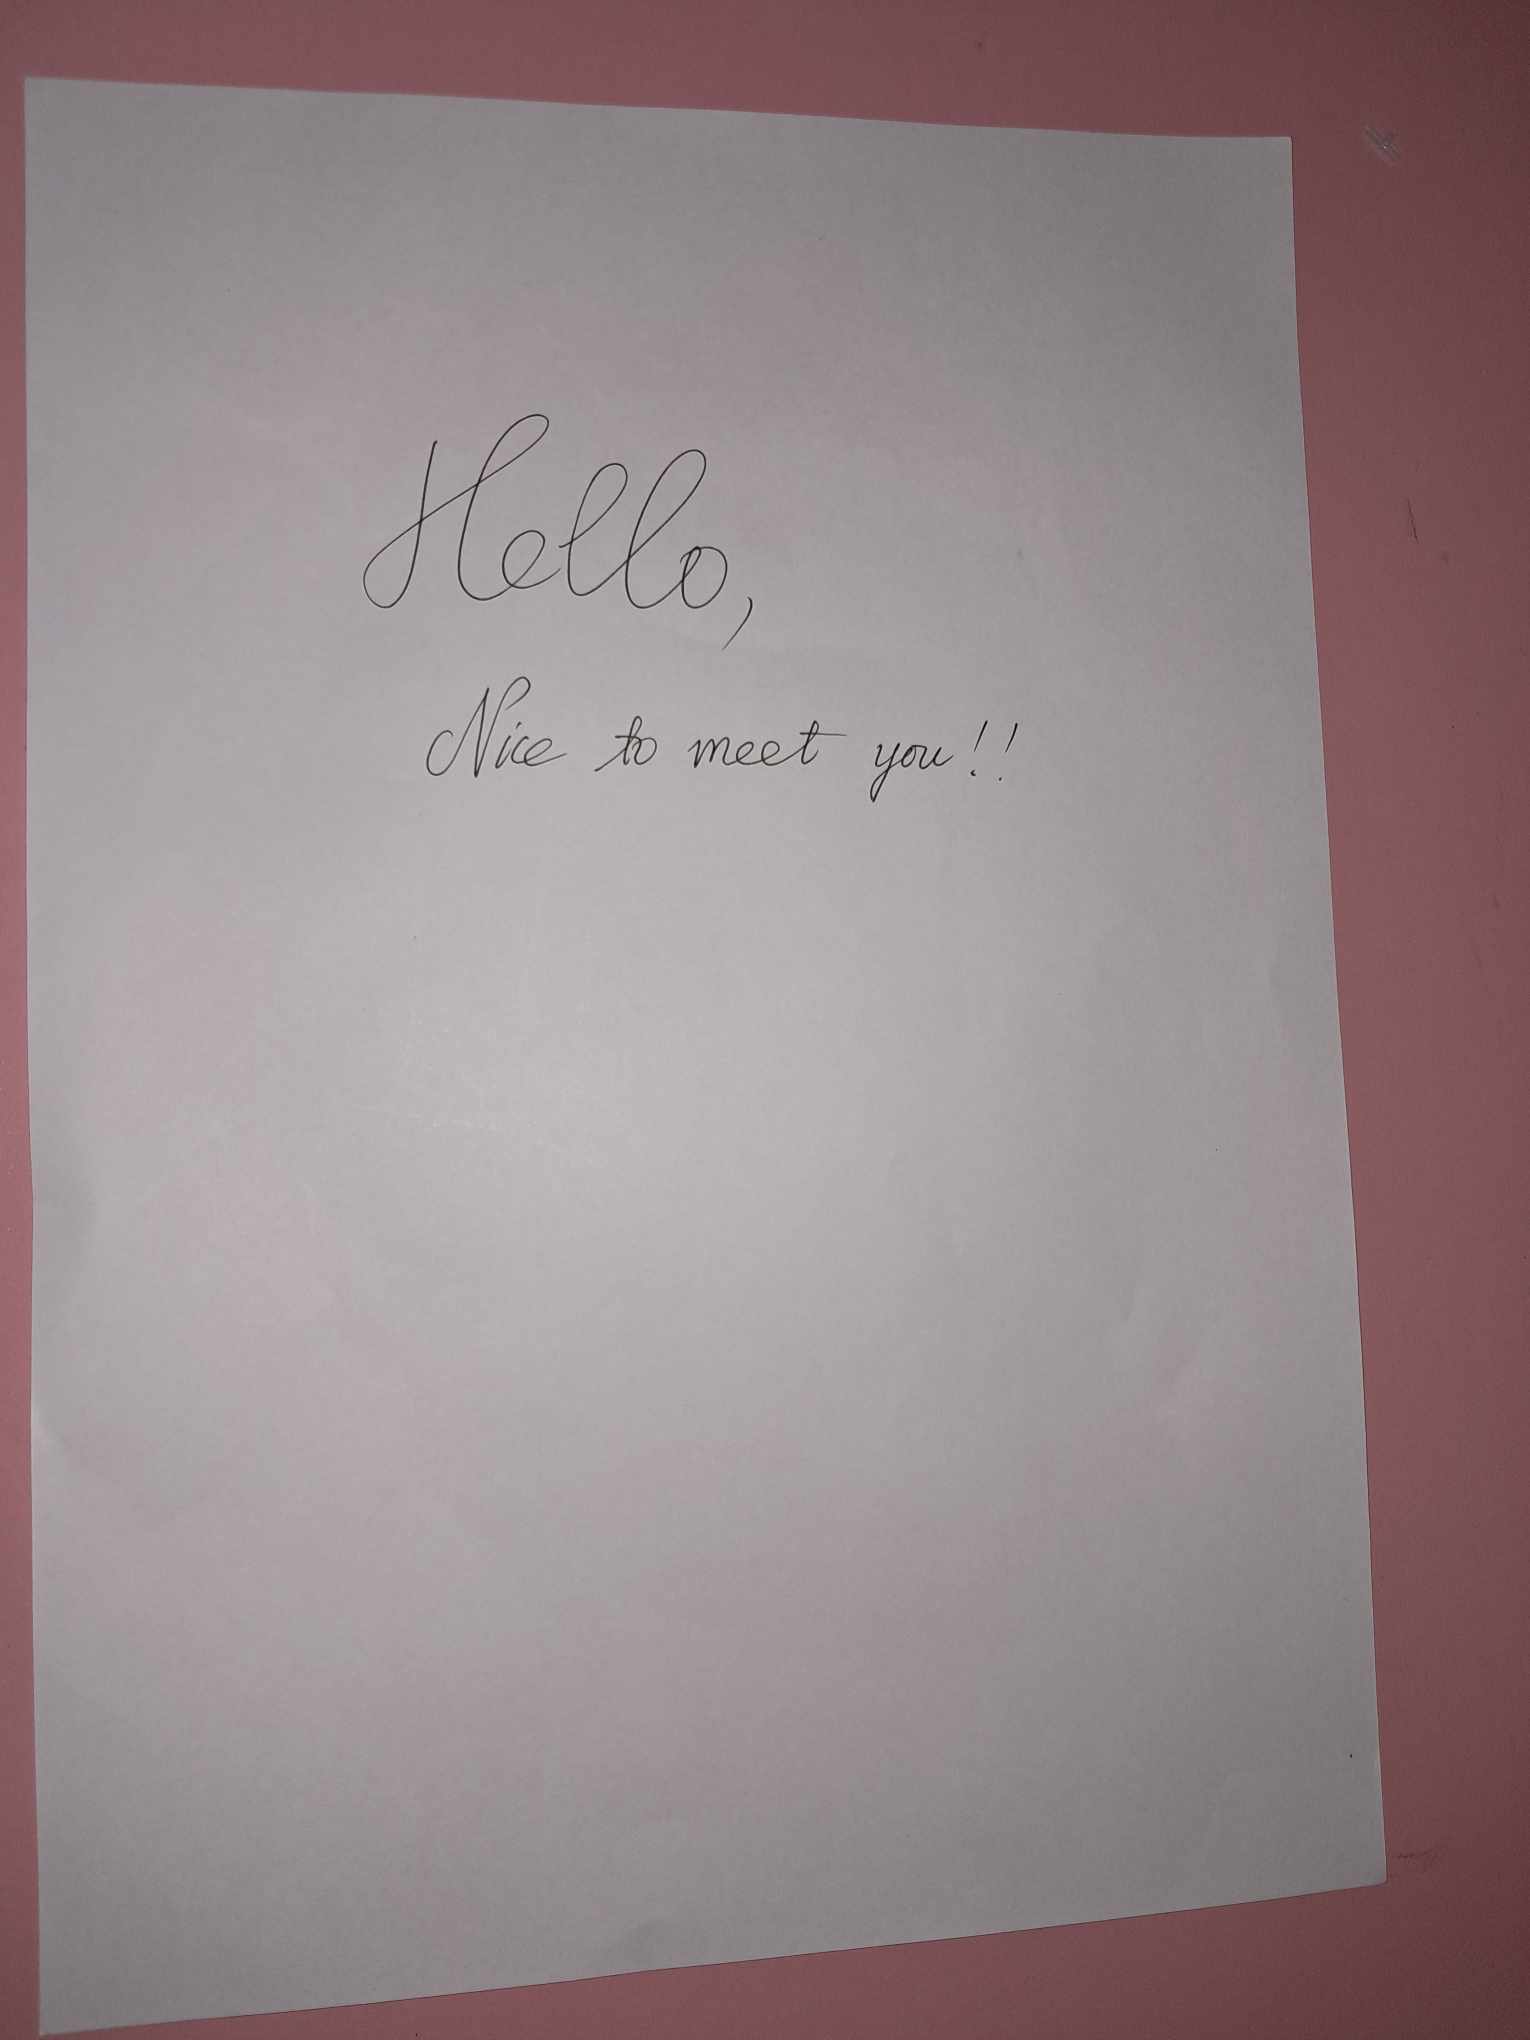 Hello,
Nice to meet you!!